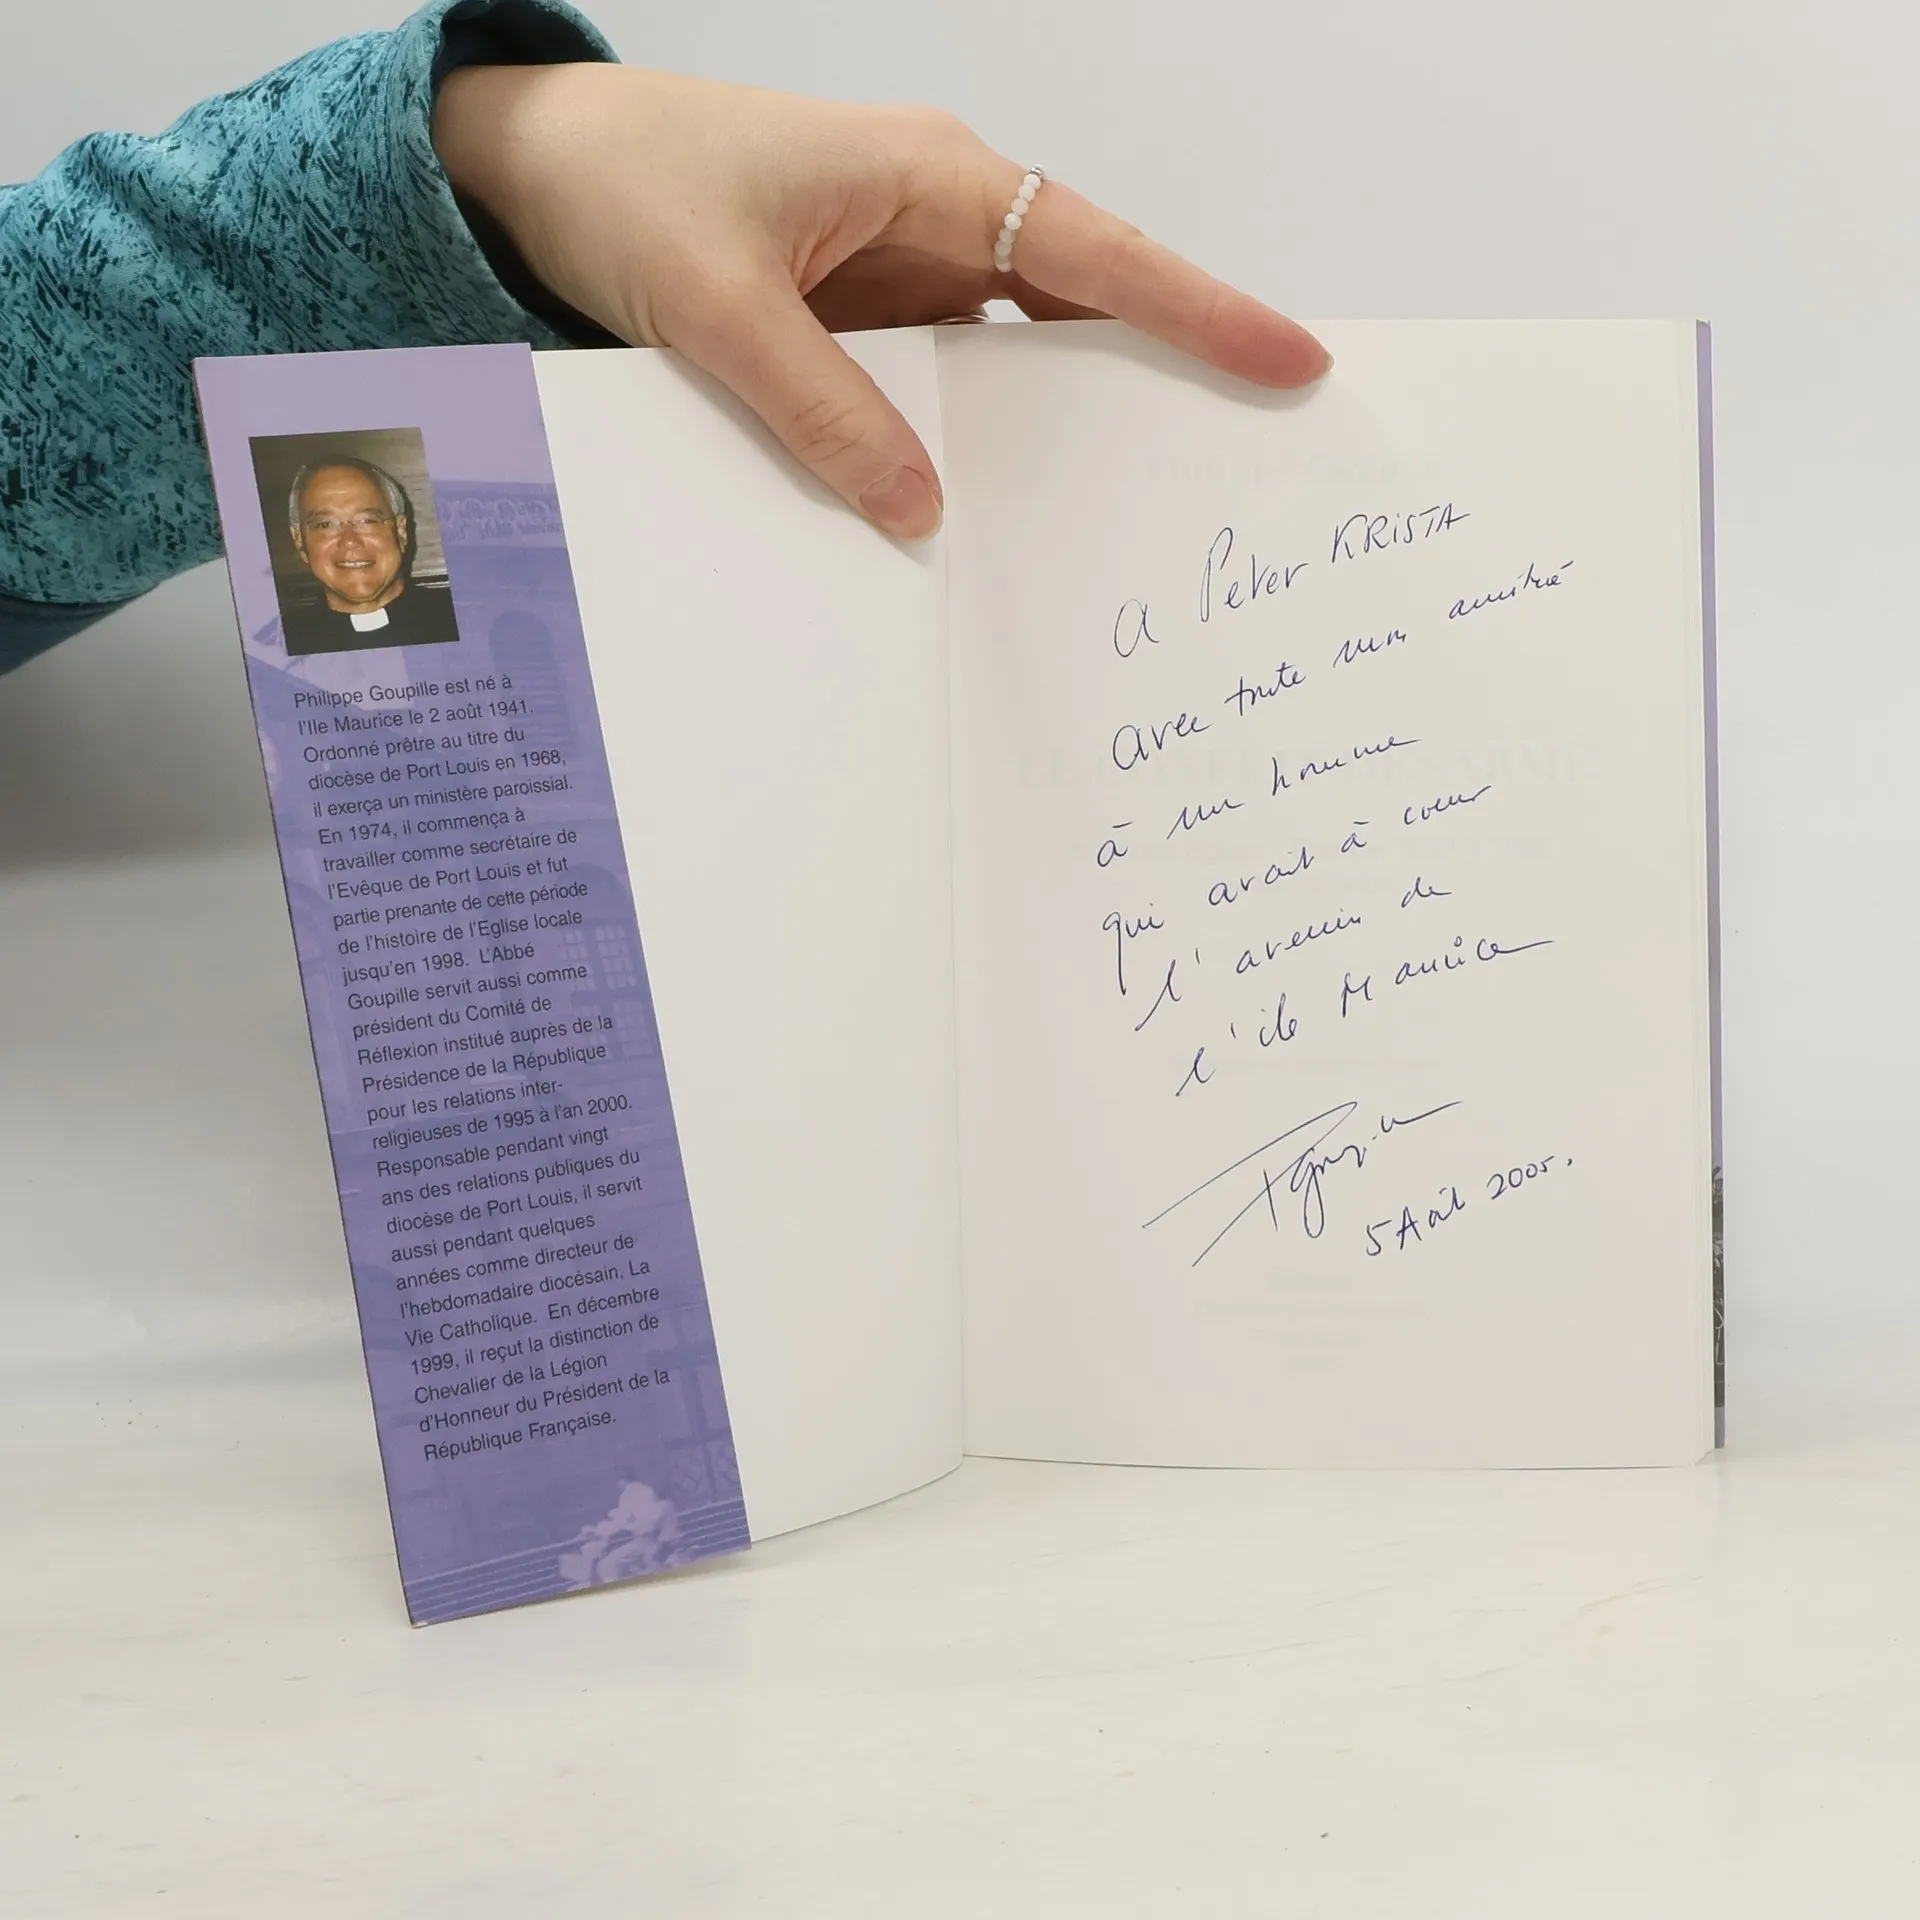 Philippe Goupille est né à
l'Ile Maurice le 2 août 1941.
Ordonné prêtre au titre du
diocèse de Port Louis en 1968,
il exerça un ministère paroissial.
En 1974, il commença à
travailler comme secrétaire de
l'Evêque de Port Louis et fut
partie prenante de cette période
de l'histoire de l'Eglise locale
jusqu'en 1998. L'Abbé
Goupille servit aussi comme
président du Comité de
Réflexion institué auprès de la
Présidence de la République
pour les relations inter-
religieuses de 1995 à l'an 2000.
Responsable pendant vingt
ans des relations publiques du
diocèse de Port Louis, il servit
aussi pendant quelques
années comme directeur de
l'hebdomadaire diocésain, La
Vie Catholique. En décembre
1999, il reçut la distinction de
Chevalier de la Légion
d'Honneur du Président de la
République Française.
A Peter KRISTA
avec toute mon amitié
à un homme
qui avait à coeur
l'avenir de
l'île Maurice
5 Août 2005.